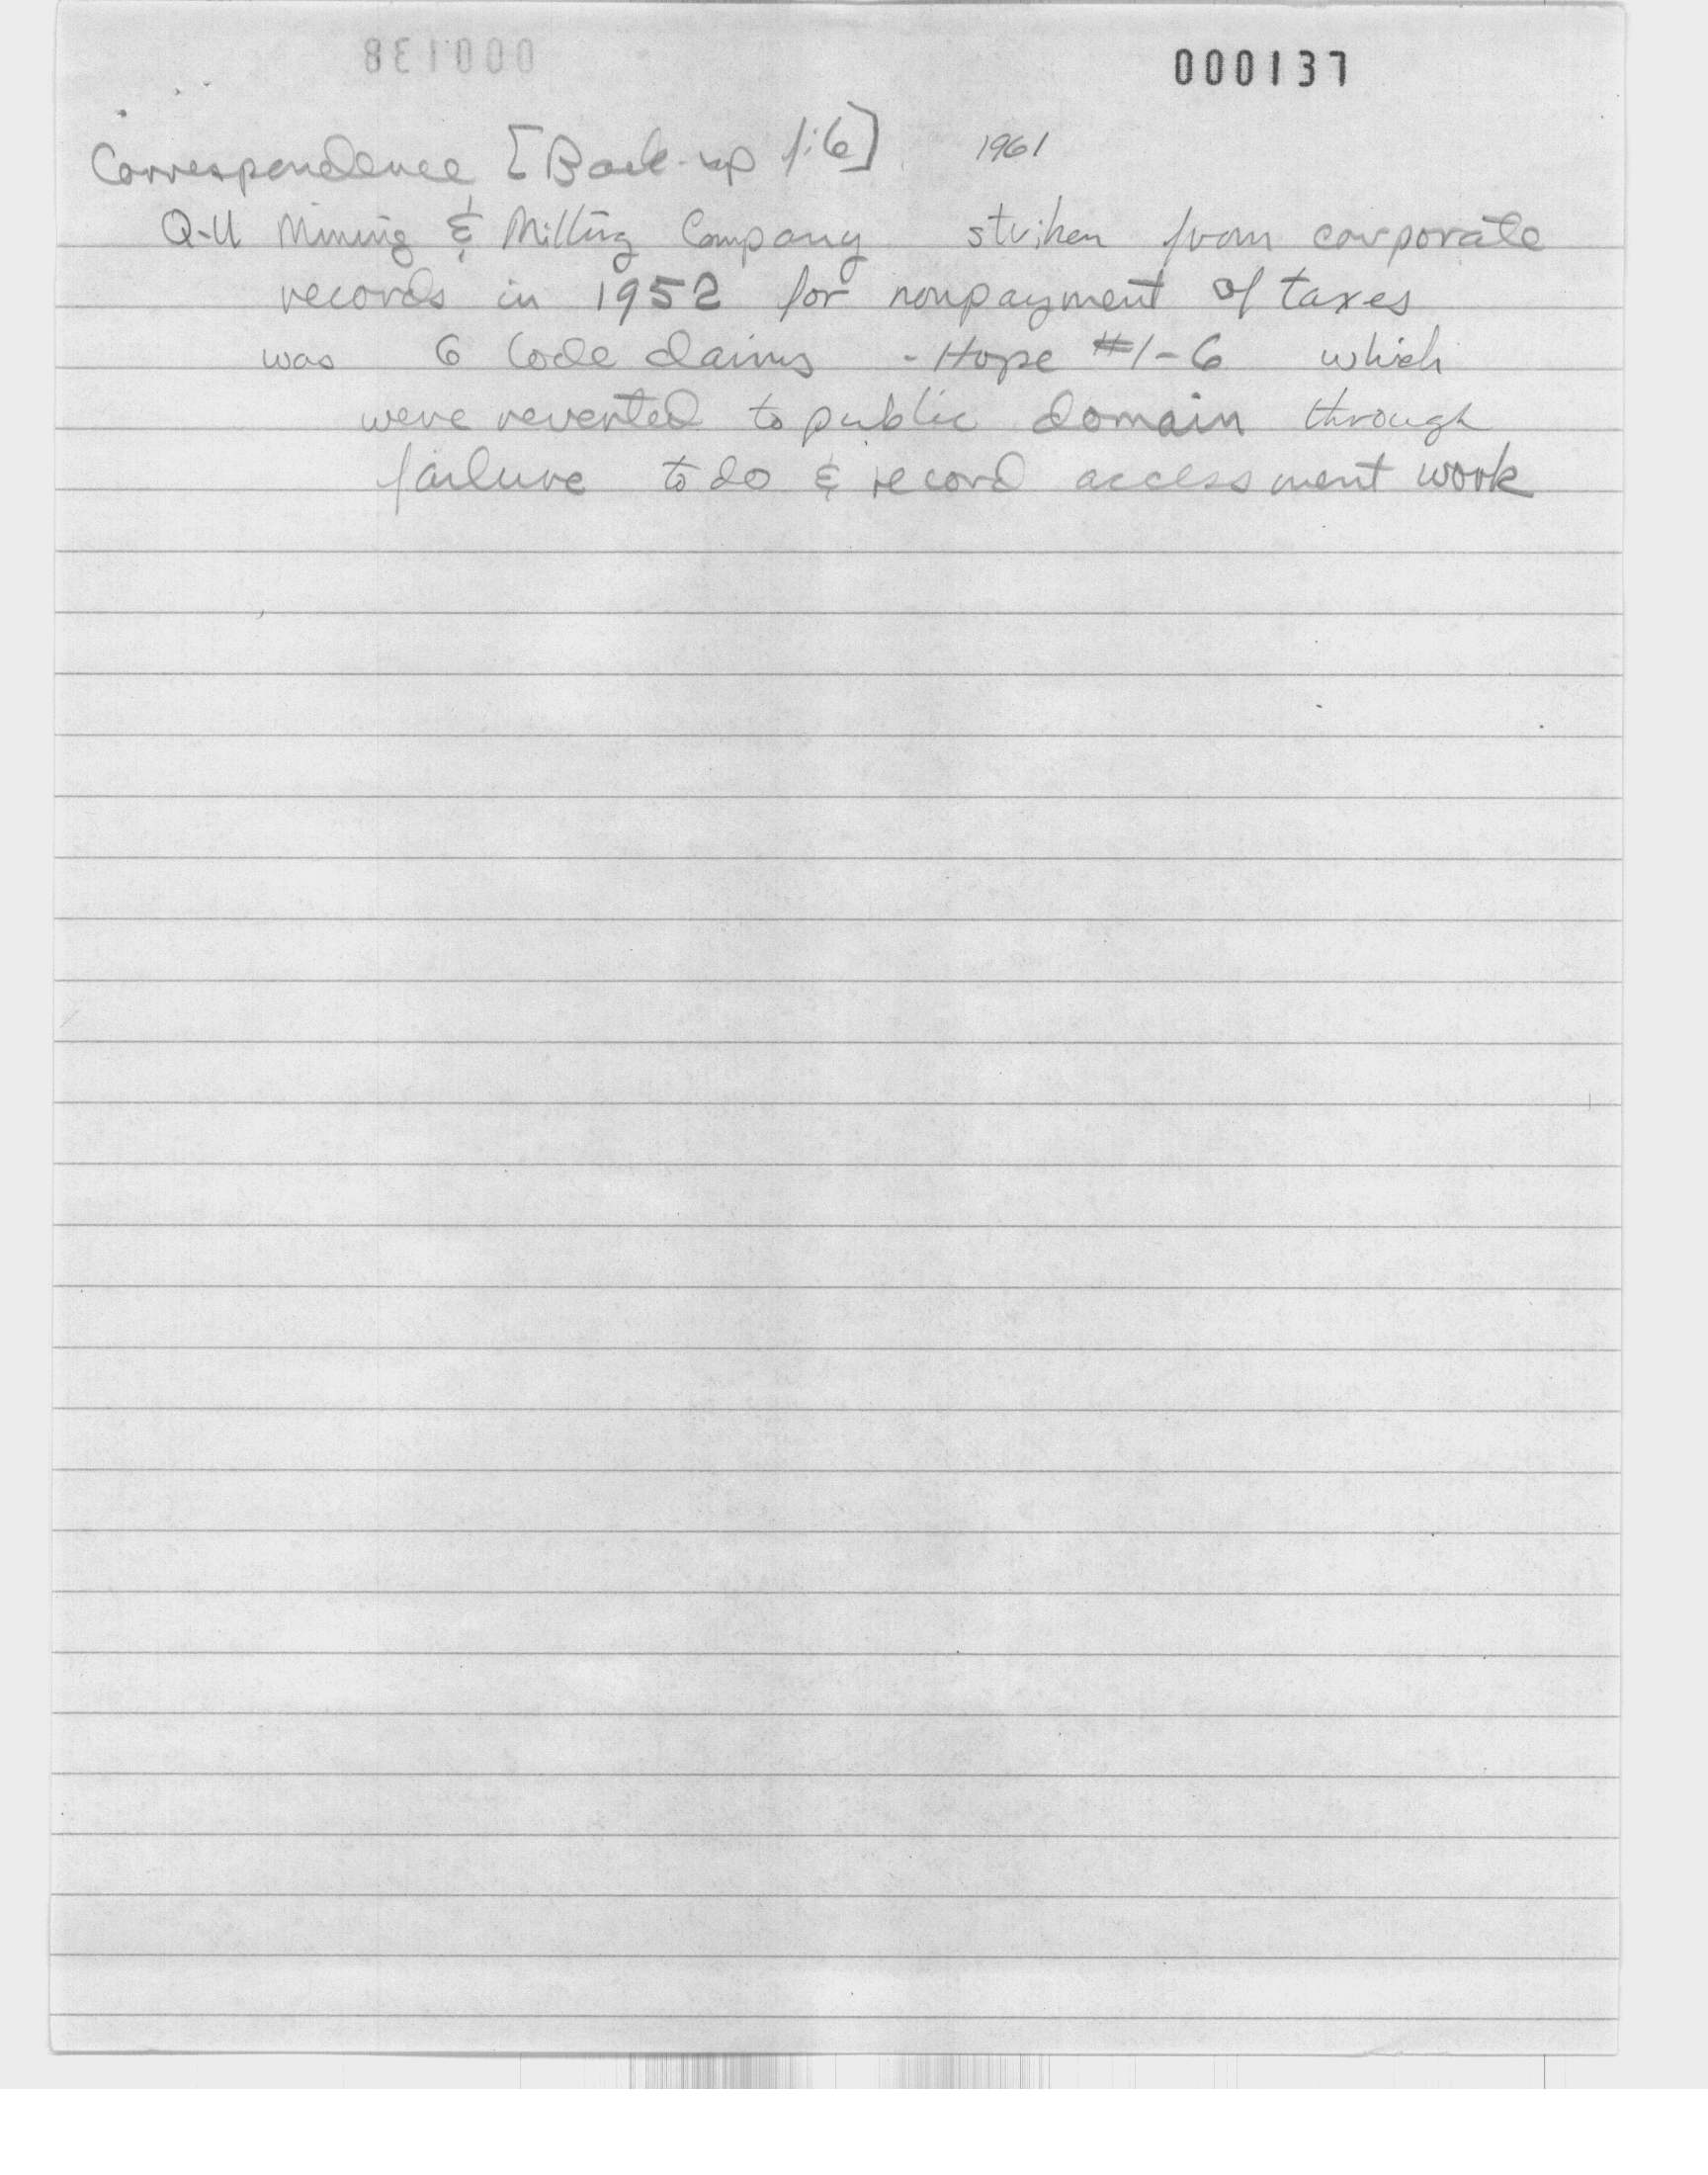 000137
Correspondence [Back-up 1:6] 1961
Q-U Mining & Milling Company striken from corporate
records in 1952 for nonpayment of taxes
was 6 lode claims - Hope #1-6 which
were reverted to public domain through
failure to do & record accessment work